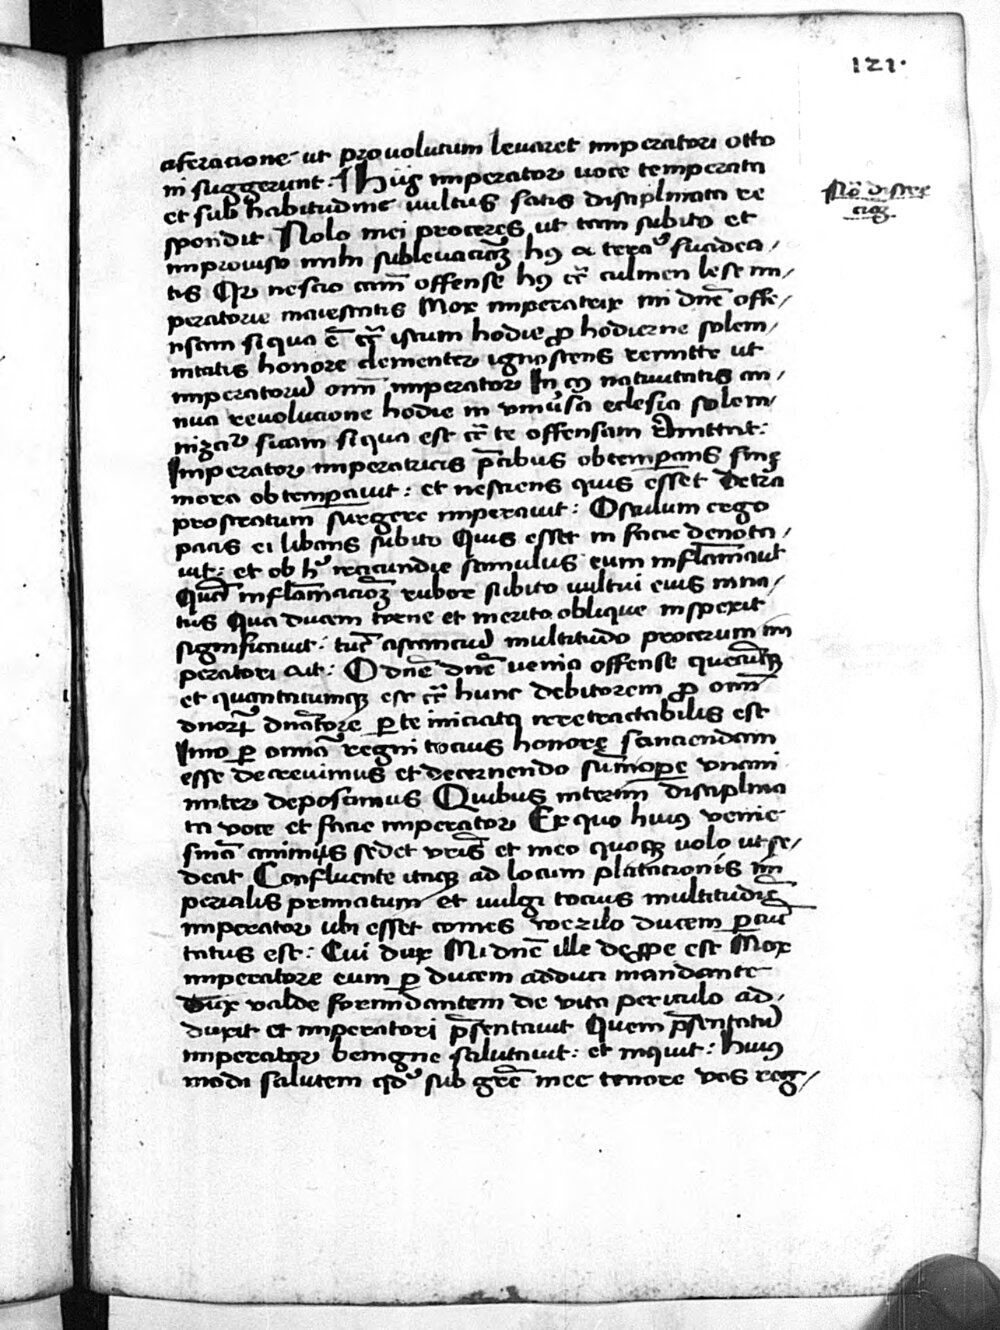 121.
aseracione ut provolutum levaret imperatori otto
ni suggerunt. Huic imperator voce temperata
et sub habitudine vultus satis disciplinata re
spondit Nolo mei proceres ut tam subito et
improviso mihi sublevacioēm
tis Qr nescio cām offense culmen lese im/
peratorie maiestatis Mox imperatrix mi dnē offe/
nsam si qua ē istum hodie ꝓ hodierne solem/
nitatis honore clementer ignoscens remitte ut
imperatorū om̄ imperator In natiuitatis an/
nua revolucione hodie in vniūsa eclesia solem/
nizat suam si qua est te offensam remittat:
Imperator imperatricis p̄cibus obtemperans sine
mora obtemperavit: et nesciens quis esset
prostratum surgere imperavit: Osculum ergo
pacis ei libans subito Quis esset in facie denota/
vit: et ob h iracundie stimulus eum inflāmavit
inflāmacioēm rubor subito vultui eius inna/
tus Qua ducem torve et merito oblique inspexit
significavit: tūc astanciū multitudo procerum im
peratori ait: O dnē dnē venia offense
et quantacumqꝫ est hunc debitorem ꝓ om̄
per te iniciatꝫ irretractabilis est
Imo per omīa regni tocius honore sanciendam
esse decrevimus et decernendo sumope vnani
miter deposcimus Quibus interim disciplina
ta voce et facie imperator Ex quo huius venie
sn̄ia animis sedet vr̄is et meo quoqꝫ volo ut se/
deat Confluente itaqꝫ ad locum placacionis im
perialis primatum et vulgi tocius multitudīe
imperator ubi esset comes wezilo ducem percunc
tatus est: Cui dux Mi dnē ille deꝓpe est Mox
imperatore eum per ducem adduci mandante
Dux valde formidantem de vita periculo ad/
duxit et imperatori p̄sentavit Quem p̄sentatū
imperator benigne salutavit: et inquit: Huius
modi salutem sub grē mee tenore vos reg/